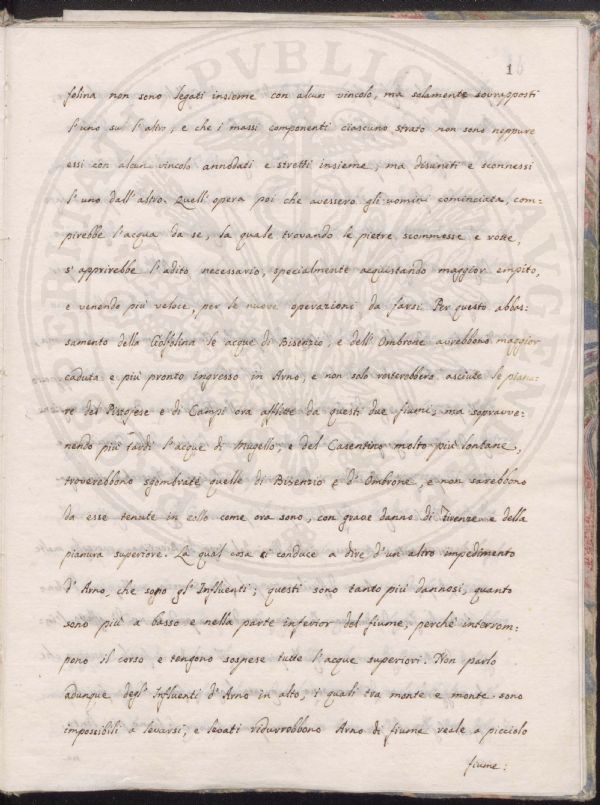 16
folina non sono legati insieme con alcun vincolo, ma solamente sovrapposti
l'uno su l'altro, e che i massi componenti ciascuno strato non sono neppure
essi con alcun vincolo annodati e stretti insieme; ma disuniti e sconnessi
l'uno dall'altro. Quell'opera poi che avessero gli uomini cominciata, com=
pirebbe l'acqua da se, la quale trovando le pietre scommesse e rotte,
s'apprirebbe l'adito necessario, specialmente acquistando maggior empito,
e venendo più veloce, per le nuove operazioni da farsi. Per questo abbas=
samento della Golfolina le acque di Bisenzio, e dell'Ombrone avrebbono maggior
caduta e più pronto ingresso in Arno, e non solo resterebbero asciute le pianu=
re del Pistojese e di Campi ora afflitte da questi due fiumi, ma sopravve=
nendo più tardi l'acque di Mugello, e del Casentino molto più lontane,
troverebbono sgombrate quelle di Bisenzio e d'Ombrone, e non sarebbono
da esse tenute in collo come ora sono, con grave danno di Firenze e della
pianura superiore. La qual cosa ci conduce a dire d'un altro impedimento
d'Arno, che sono gl'Influenti; questi sono tanto più dannosi, quanto
sono più a basso e nella parte inferior del fiume, perché interrom=
pono il corso e tengono sospese tutte l'acque superiori. Non parlo
adunque degl'Influenti d'Arno in alto, i quali tra monte e monte sono
impossibili a levarsi, e levati ridurrebbono Arno di fiume reale a picciolo
fiume: